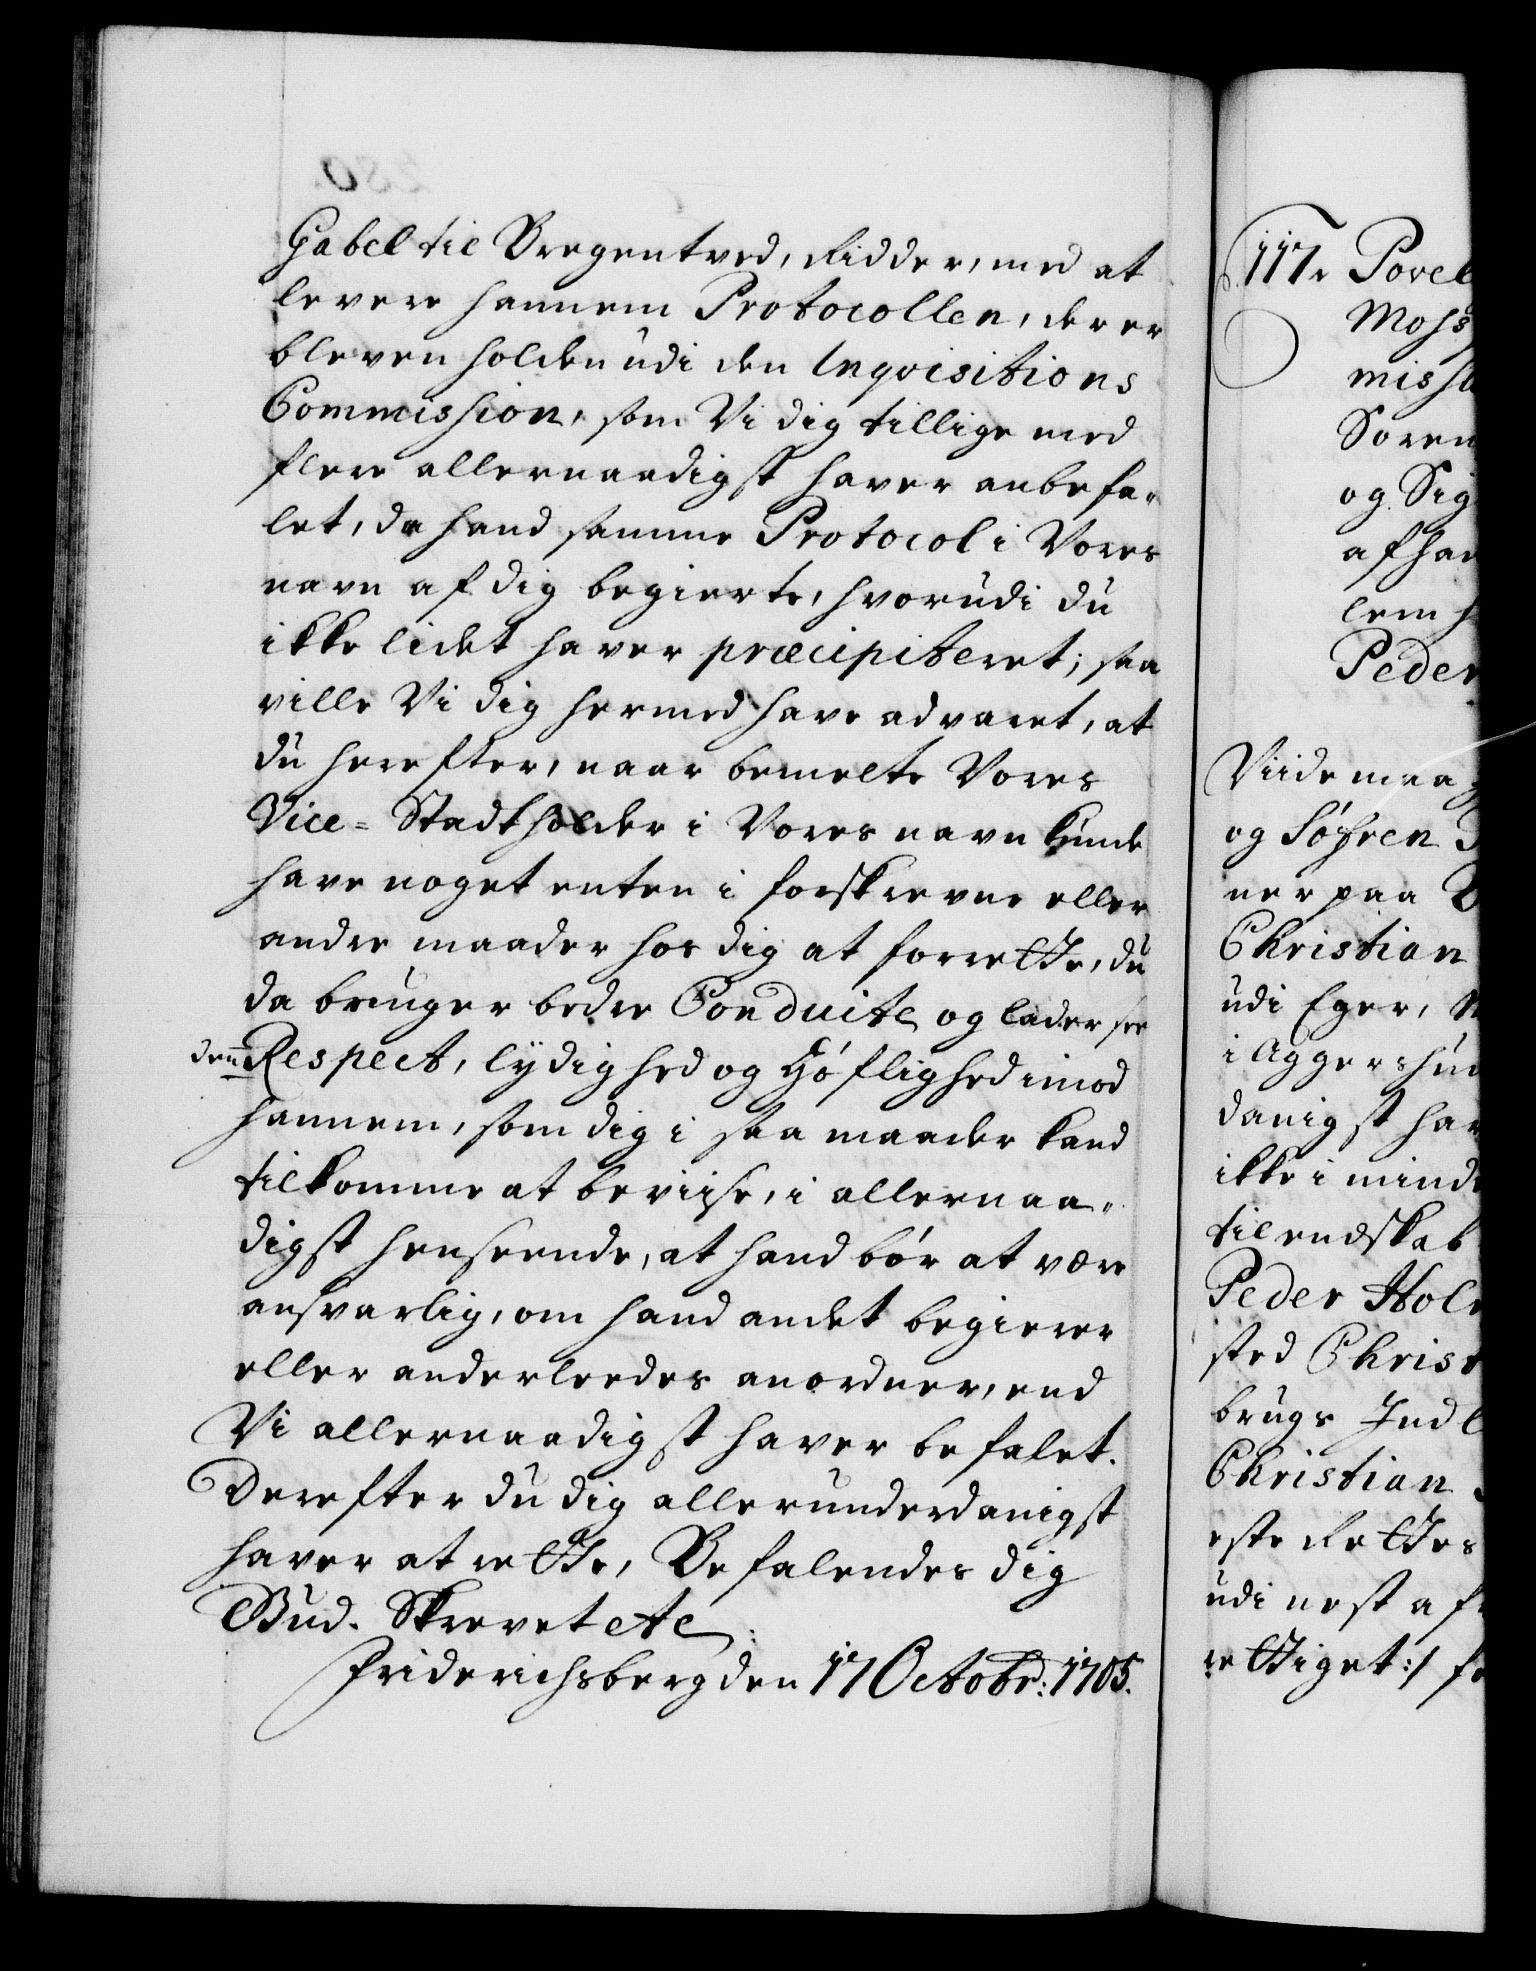 Gabel til Bregentved, Ridder, med at
levere hannem Protocollen, der er
bleven holden udi den Inqvisitions
Commission, som Vi dig tillige med
flere allernaadigst haver anbefa-
let, da hand samme Protocol i Vores
navn af dig begierte, hvorudi du
ikke lidet haver præcipiteret; saa
ville Vi dig hermed have advaret, at
du herefter, naar bemelte Vores
Vice-Stadtholder i Vores navn kunde
have noget enten i forskrevne eller
andre maader hos dig at forrette, du
da bruger bedre Conduite og lader see
den Respect, lydighed og Höflighed imod
hannem, som dig i saa maader kand
tilkomme at beviise, i allernaa-
digst henseende, at hand bör at være
ansvarlig, om hand andet begierer
eller anderleedes anordner, end
Vi allernaadigst haver befalet.
Derefter du dig allerunderdanigst
haver at rette, Befalendes dig
Gud. Skrevet etc:
Friderichsberg den 17 Octobr: 1705.
117. Povel
Moss
miss
Soren
og Sig
af han
lem
Peder
Viide maa
og Söfren
ner paa
Christian
udi Eger,
i Aggershuu
danigst hav
ikke i mind
til endskab
Peder Hol
sted Christ
brugs Ind
Christian
este Rettes
udi nest af
rettiget:/